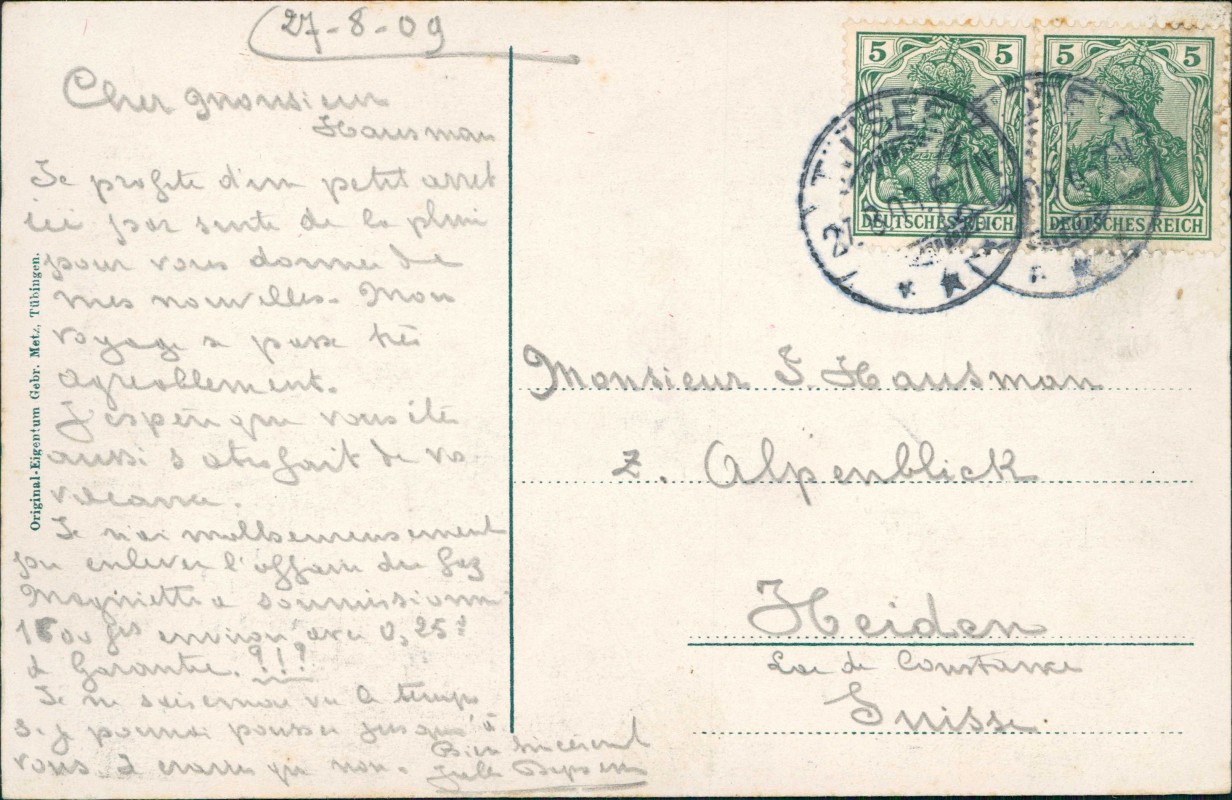 27-8-09
Cher Monsieur
Hausman
Je profite d'un petit arret
ici par suite de la pluie
pour vous donner de
mes nouvelles. Mon
voyage a passé très
agreablement.
J'espère que vous êtes
aussi satisfait de vos
vacances.
Je n'ai malheureusement
pu enlever l'affaire du Gaz
a soumissionné
1500 environ avec 0,25
d garantie. ?!?
Je ne sais encore vu le temps
si je pourrai pousser jusqu'à
vous. crains que non.
Bien sincèrement
Jules
Original-Eigentum Gebr. Metz, Tübingen.
5 5
DEUTSCHES REICH
5 5
DEUTSCHES REICH
TITISEE
27.8.09.
Monsieur J. Hausman
z. Alpenblick
Heiden
Lac de Constance
Suisse.